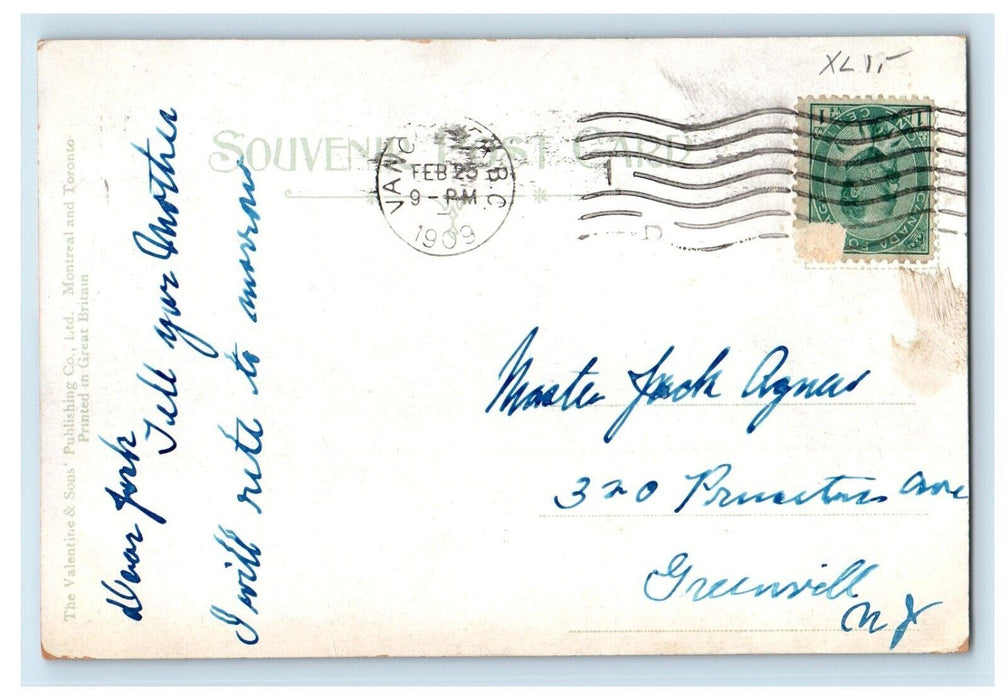 XL 15
SOUVENIR POST CARD
VANCOUVER B.C.
FEB 25
9 - PM
1909
1
1 1
CANADA POSTAGE
The Valentine & Sons' Publishing Co., Ltd. Montreal and Toronto
Printed in Great Britain
Dear Jack
Tell your Mother
I will rite to morrow
Master Jack Agnew
320 Princeton Ave
Greenvill
N J